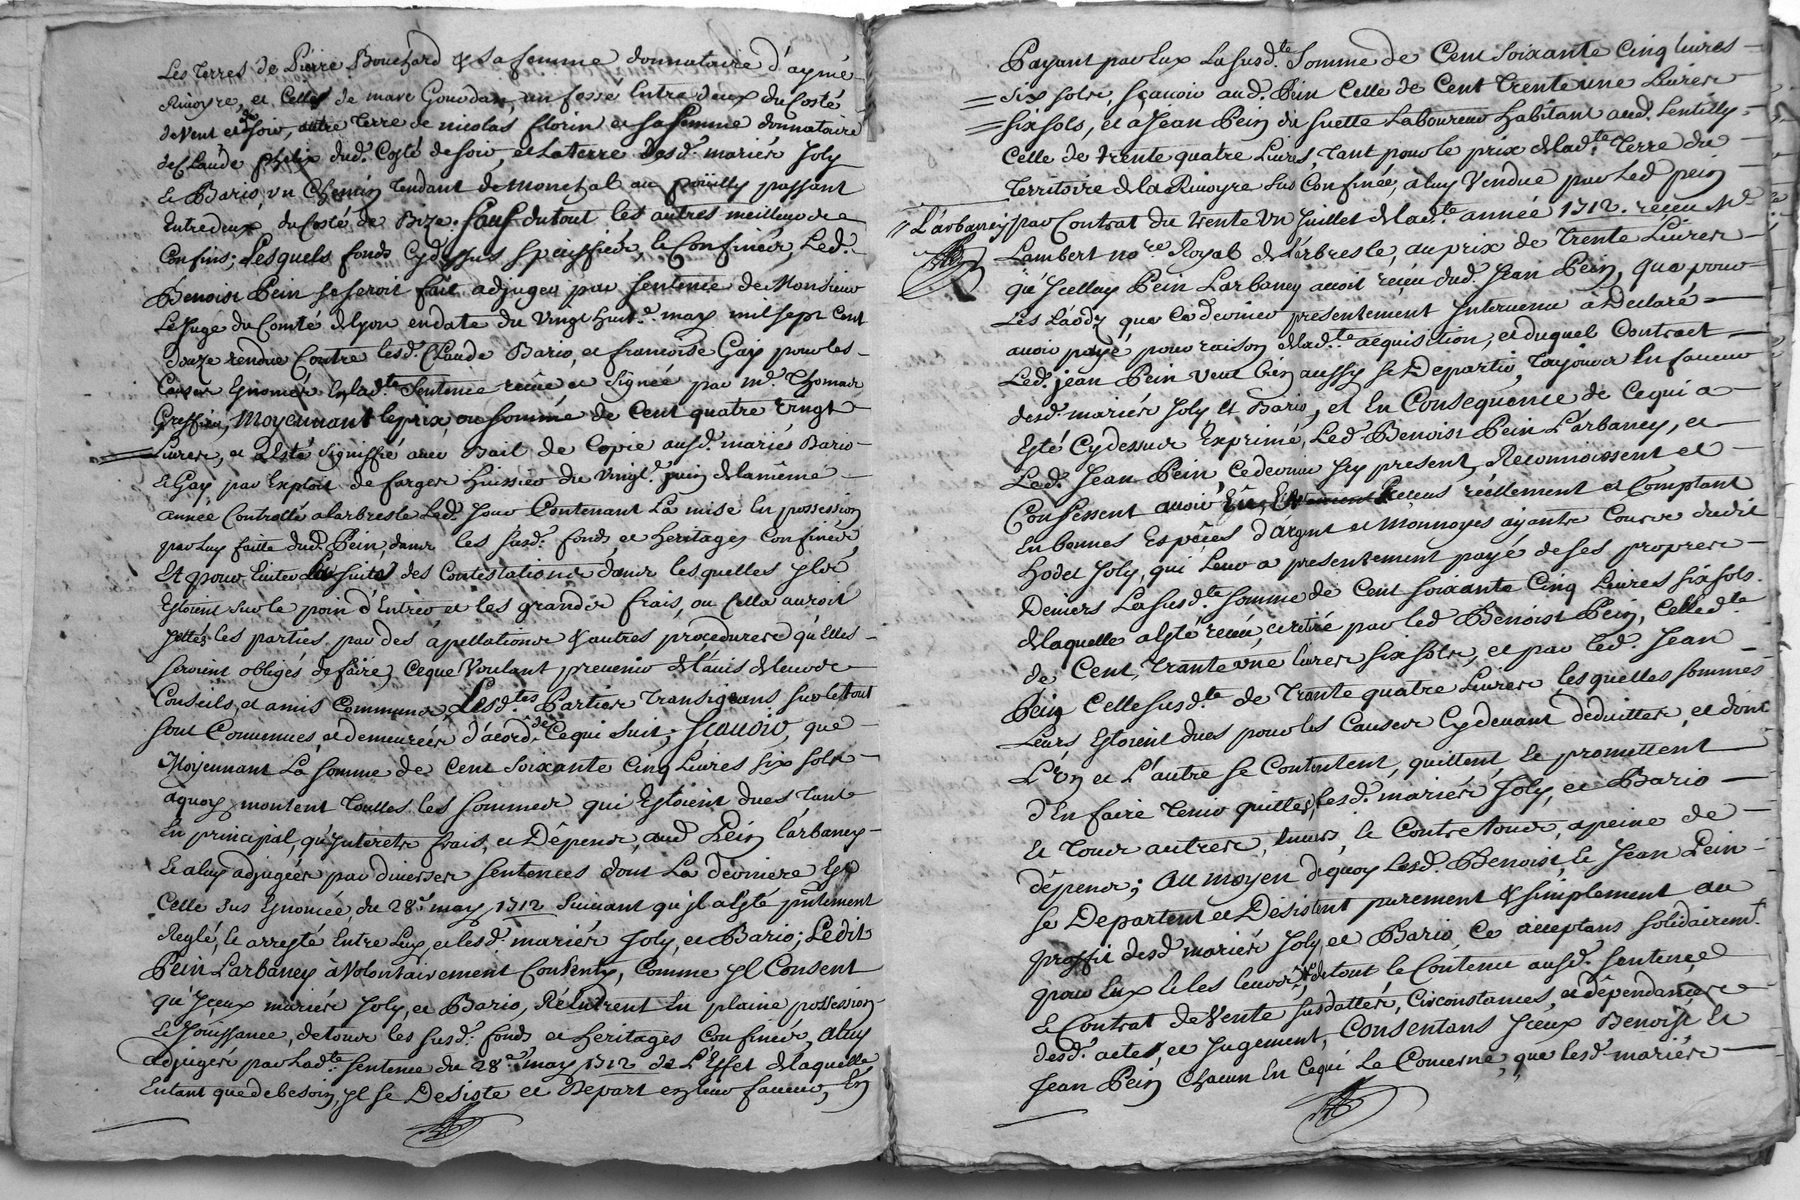 Les Terres de Pierre Bouchard & sa femme donnataire d'aymé
Rivoyre, et Celle de marc Goudan un fossé Entre deux du Costé
de Vent et de soir, autre Terre de nicolas florin et sa femme donnataire
de Claude phelix dud. Costé de soir, et la terre desd. mariés Joly
et Bario, un Chemin Tendant de Monchal au poüilly passant
Entredeux du Costé de Bize. Sauf du tout les autres meilleurs
Confins; Lesquels fonds Cydessus Speciffiés, & Confinés, Led.
Benoist Pein se seroit fait adjuger par sentence de Monsieur
Le Juge du Comté de Lyon en datte du Vingt huit.e may mil sept Cent
douze rendue Contre lesd. Claude Bario, et françoise Gay pour les
Causes Enoncés En lad.te Sentence reçue et signée par m.e Thomas
Greffier, Moyennant le prix ou somme de Cent quatre Vingt
Livres, et a Esté signiffié avec Bail de Copie ausd. mariés Bario
et Gay, par Exploit de farges Huissier du Vingt. juin de la même
année Controllé a Larbresle Led. Jour Contenant La mise En possession
par Luy faitte dud. Pein, dans les susd. fonds et heritages Confinés
Et pour Eviter La suite des Contestations dans lesquelles yls
Estoient sur le poin d'Entrer et les grands frais, ou Cella auroit
Jettés les parties par des apellations & autres procedures qu'Elles
seroient obligés de faire, Ceque Voulant prevenir de l'avis de leurs
Conseils, et amis Communs, Lesd.tes Parties Transigeans sur le tout
sont Convenues, et demeurées d'acord de Ce qui suit; Sçavoir, que
Moyennant La somme de Cent soixante Cinq Livres six sols
aquoy montent Toutes les sommes qui Estoient dues Tant
En principal, qu'Interets frais, et Dépens, aud. Pein l'arbaney
et a luy adjugées par diverses sentences dont La derniere Est
Celle sus Enoncée du 28.e may 1712 suivant qu'il a Esté pntement
Reglé, & arresté Entre Eux, et lesd. mariés Joly, et Bario; Ledit
Pein Larbaney à Volontairement Consenty, Comme yl Consent
qu'Iceux mariés Joly, et Bario, Réentrent En plaine possession
et Joüissance, de tous les susd. fonds et heritages Confinés, a luy
adjugés par Lad.te sentence du 28.e may 1712 de L'Effet de laquelle
Entant que de besoin, yl se Desiste et Depart en leur faveur, En
Payant par Eux La susd.te Somme de Cent soixante Cinq livres
six sols, sçavoir aud. Pein Celle de Cent Trente une Livres
six sols, et a Jean Pein du Suelle Laboureur Habitant aud. Lentilly
Celle de trente quatre Livres, Tant pour le prix de lad.te Terre du
Territoire de la Rivoyre sus Confinée, a luy Vendue par Led. pein
L'arbaney par Contrat du trente Un Juillet de lad.te année 1712. receu M.e
Lambert no.re Royal de L'arbresle, au prix de Trente Livres
qu'Icelluy Pein Larbaney avoit reçeu dud. Jean Pein, que pour
Les Laods que Ce dernier presentement Intervenu a Declaré
avoir payé pour raison de lad.te acquisition, et duquel Contract
Led. jean Pein veut bien aussy se Departir, Toujours En faveur
desd. mariés Joly Et Bario, et En Consequence de Cequi a
Esté Cydessus Exprimé, Led. Benoist Pein L'arbaney, et
Led. Jean Pein, Ce dernier Icy present, Reconnoissent et
Confessent avoir Eu, Receus réellement et Comptant
En bonnes Espéces d'argnt et Monnoyes ayants Cours dudit
Hodet Joly, qui Leur a presentement payé de ses propres
Deniers La susd.te somme de Cent soixante Cinq Livres six sols
de laquelle a Esté receu, et retiré par led. Benoist Pein, Celle de
de Cent Trante une livres six sols, et par led. Jean
Pein Celle susd.te de Trante quatre Livres lesquelles sommes
Leurs Estoient dues pour les Causes Cy devant deduittes, et dont
L'Un et L'autre se Contentent, quittent, & promettent
d'En faire Tenir quittes, Lesd. mariés Joly, et Bario
et Tous autres, Envers, & Contre tous, a peine de
dépens; Au moyen dequoy Lesd. Benoist, & Jean Pein
se Departent et Désistent purement & simplement au
proffit desd. mariés Joly, et Bario, Ce acceptans solidairemt.
pour Eux & les leurs, de tout le Contenu ausd. sentence
& Contrat de Vente susdattés, Circonstances, et dépendances
desd. actes, et Jugement, Consentans Iceux Benoist et
Jean Pein Chacun En Cequi Le Concerne, que lesd. mariés